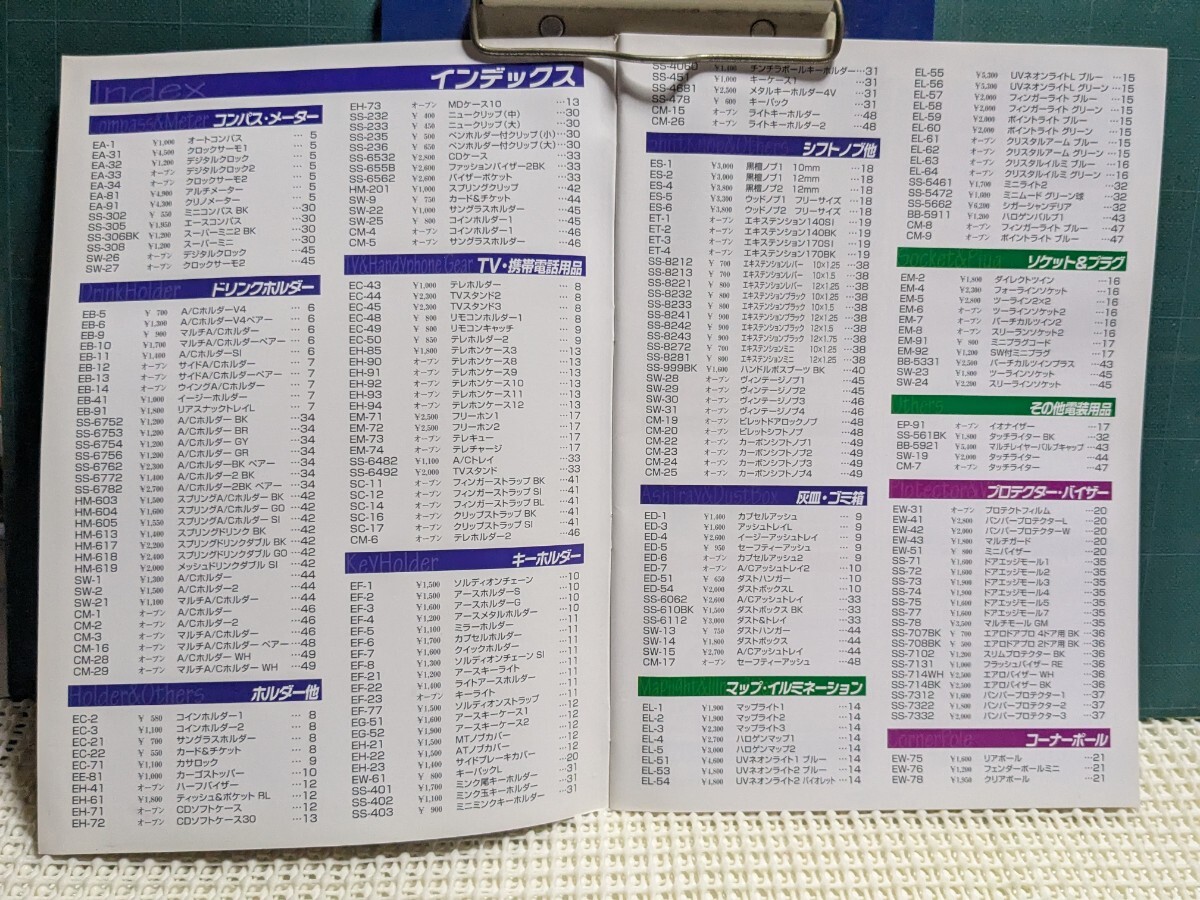 Index インデックス
Compass&Meter コンパス・メーター
EA-1 ¥1,000 オートコンパス …5
EA-31 ¥4,500 クロックサーモ1 …5
EA-32 ¥1,200 デジタルクロック …5
EA-33 オープン デジタルクロック2 …5
EA-34 オープン クロックサーモ2 …5
EA-81 ¥4,900 アルチメーター …5
EA-91 ¥4,300 クリノメーター …5
SS-302 ¥ 550 ミニコンパス BK …30
SS-305 ¥1,950 エースコンパス …30
SS-306BK ¥1,200 スーパーミニ2 BK …30
SS-308 ¥1,200 スーパーミニ …30
SW-26 オープン デジタルクロック …45
SW-27 オープン クロックサーモ2 …45
DrinkHolder ドリンクホルダー
EB-5 ¥ 700 A/CホルダーV4 …6
EB-6 ¥1,300 A/CホルダーV4ペアー …6
EB-9 ¥ 900 マルチA/Cホルダー …6
EB-10 ¥1,700 マルチA/Cホルダーペアー …6
EB-11 ¥1,400 A/CホルダーSI …6
EB-12 オープン サイドA/Cホルダー …7
EB-13 オープン サイドA/Cホルダーペアー …7
EB-14 オープン ウイングA/Cホルダー …7
EB-41 ¥1,000 イージーホルダー …7
EB-91 ¥1,800 リアスナックトレイL …7
SS-6752 ¥1,200 A/Cホルダー BK …34
SS-6753 ¥1,200 A/Cホルダー BR …34
SS-6754 ¥1,200 A/Cホルダー GY …34
SS-6756 ¥1,200 A/Cホルダー GR …34
SS-6762 ¥2,300 A/CホルダーBK ペアー …34
SS-6772 ¥1,400 A/Cホルダー2 BK …34
SS-6782 ¥2,700 A/Cホルダー2BK ペアー …34
HM-603 ¥1,500 スプリングA/Cホルダー BK …42
HM-604 ¥1,600 スプリングA/Cホルダー GO …42
HM-605 ¥1,550 スプリングA/Cホルダー SI …42
HM-613 ¥1,400 スプリングドリンク BK …42
HM-617 ¥2,200 スプリングドリンクダブル BK …42
HM-618 ¥2,400 スプリングドリンクダブル GO …42
HM-619 ¥2,000 メッシュドリンクダブル SI …42
SW-1 ¥1,300 A/Cホルダー …44
SW-2 ¥1,500 A/Cホルダー2 …44
SW-21 ¥1,100 マルチA/Cホルダー …44
CM-1 オープン A/Cホルダー …46
CM-2 オープン A/Cホルダー2 …46
CM-3 オープン マルチA/Cホルダー …46
CM-16 オープン マルチA/Cホルダー ペアー …48
CM-28 オープン A/Cホルダー WH …49
CM-29 オープン マルチA/Cホルダー WH …49
Holder&Others ホルダー他
EC-2 ¥ 580 コインホルダー1 …8
EC-3 ¥1,100 コインホルダー2 …8
EC-21 ¥ 700 サングラスホルダー …8
EC-22 ¥ 550 カード&チケット …8
EC-71 ¥1,100 カサロック …9
EE-81 ¥1,000 カーゴストッパー …10
EH-41 オープン ハーフバイザー …12
EH-61 ¥1,800 ティッシュ&ポケット BL …12
EH-71 オープン CDソフトケース …12
EH-72 オープン CDソフトケース30 …13
EH-73 オープン MDケース10 …13
SS-232 ¥ 400 ニュークリップ(中) …30
SS-233 ¥ 450 ニュークリップ(大) …30
SS-235 ¥ 500 ペンホルダー付クリップ(小) …30
SS-236 ¥ 650 ペンホルダー付クリップ(大) …30
SS-6532 ¥2,800 CDケース …33
SS-655B ¥2,600 ファッションバイザー2BK …33
SS-6562 ¥2,600 バイザーポケット …33
HM-201 ¥1,000 スプリングクリップ …42
SW-9 ¥ 750 カード&チケット …44
SW-22 ¥1,000 サングラスホルダー …45
SW-25 ¥ 800 コインホルダー1 …45
CM-4 オープン コインホルダー1 …46
CM-5 オープン サングラスホルダー …46
TV&HandyphoneGear TV・携帯電話用品
EC-43 ¥1,000 テレホルダー …8
EC-44 ¥2,300 TVスタンド2 …8
EC-45 ¥2,300 TVスタンド3 …8
EC-48 ¥ 800 リモコンホルダー1 …8
EC-49 ¥ 800 リモコンキャッチ …9
EC-50 ¥ 850 テレホルダー2 …9
EH-85 ¥1,800 テレホンケース3 …13
EH-90 オープン テレホンケース8 …13
EH-91 オープン テレホンケース9 …13
EH-92 オープン テレホンケース10 …13
EH-93 オープン テレホンケース11 …13
EH-94 オープン テレホンケース12 …13
EM-71 ¥2,500 フリーホン1 …17
EM-72 ¥2,500 フリーホン2 …17
EM-73 オープン テレキュー …17
EM-74 オープン テレチャージ …17
SS-6482 ¥1,100 A/Cトレイ …33
SS-6492 ¥2,000 TVスタンド …33
SC-11 オープン フィンガーストラップ BK …41
SC-12 オープン フィンガーストラップ SI …41
SC-14 オープン フィンガーストラップ BL …41
SC-16 オープン クリップストラップ BK …41
SC-17 オープン クリップストラップ SI …41
CM-6 オープン テレホルダー2 …46
KeyHolder キーホルダー
EF-1 ¥1,500 ソルディオンチェーン …10
EF-2 ¥1,500 アースホルダーS …10
EF-3 ¥1,600 アースホルダーG …10
EF-4 ¥1,200 アースメタルホルダー …10
EF-5 ¥1,100 ミラーホルダー …11
EF-6 ¥1,700 カプセルホルダー …11
EF-7 ¥1,500 クイックホルダー …11
EF-8 ¥1,300 ソルディオンチェーン SI …11
EF-21 ¥2,200 アースキーライト …11
EF-22 ¥1,400 ライトアースホルダー …11
EF-23 オープン キーライト …11
EF-77 ¥1,500 ソルディオンストラップ …12
EG-51 ¥1,600 アースキーケース1 …12
EG-52 ¥1,900 アースキーケース2 …12
EH-21 ¥1,500 MTノブカバー …12
EH-22 ¥1,500 ATノブカバー …12
EH-23 ¥1,400 サイドブレーキカバー …12
EW-61 ¥ 800 キーバックL …20
SS-401 ¥1,700 ミンク尾キーホルダー …31
SS-402 ¥1,100 ミンク玉キーホルダー …31
SS-403 ¥ 900 ミニミンクキーホルダー …31
SS-4060 ¥1,400 チンチラボールキーホルダー …31
SS-451 ¥1,000 キーケース1 …31
SS-4681 ¥2,500 メタルキーホルダー4V …31
SS-478 ¥ 600 キーバック …31
CM-15 オープン ライトキーホルダー …48
CM-26 オープン ライトキーホルダー2 …48
シフトノブ他
ES-1 ¥3,000 黒檀ノブ1 10mm …18
ES-2 ¥3,000 黒檀ノブ1 12mm …18
ES-4 ¥3,800 黒檀ノブ2 12mm …18
ES-5 ¥3,300 ウッドノブ1 フリーサイズ …18
ES-6 ¥3,800 ウッドノブ2 フリーサイズ …18
ET-1 オープン エキステンション140SI …19
ET-2 オープン エキステンション140BK …19
ET-3 オープン エキステンション170SI …19
ET-4 オープン エキステンション170BK …19
SS-8212 ¥ 700 エキステンションレバー 10×1.25 …38
SS-8213 ¥ 700 エキステンションレバー 10×1.5 …38
SS-8221 ¥ 800 エキステンションレバー 12×1.25 …38
SS-8232 ¥ 800 エキステンションブラック 10×1.25 …38
SS-8233 ¥ 800 エキステンションブラック 10×1.5 …38
SS-8241 ¥ 900 エキステンションブラック 12×1.25 …38
SS-8242 ¥ 900 エキステンションブラック 12×1.75 …38
SS-8243 ¥ 900 エキステンションブラック 12×1.5 …38
SS-8272 ¥ 700 エキステンションミニ 10×1.25 …38
SS-8281 ¥ 800 エキステンションミニ 12×1.25 …38
SS-999BK ¥1,600 ハンドルボスブーツ BK …40
SW-28 オープン ヴィンテージノブ1 …45
SW-29 オープン ヴィンテージノブ2 …45
SW-30 オープン ヴィンテージノブ3 …46
SW-31 オープン ヴィンテージノブ4 …46
CM-19 オープン ビレッドドアロックノブ …48
CM-20 オープン ビレットシフトノブ …48
CM-22 オープン カーボンシフトノブ1 …49
CM-23 オープン カーボンシフトノブ2 …49
CM-24 オープン カーボンシフトノブ3 …49
CM-25 オープン カーボンシフトノブ4 …49
AshTray&DustBox 灰皿・ゴミ箱
ED-1 ¥1,400 カプセルアッシュ …9
ED-3 ¥1,600 アッシュトレイL …9
ED-4 ¥2,600 イージーアッシュトレイ …9
ED-5 ¥ 950 セーフティーアッシュ …9
ED-6 オープン セーフティーアッシュ2 …9
ED-7 オープン A/Cアッシュトレイ2 …9
ED-51 ¥ 650 ダストハンガー …10
ED-54 ¥2,000 ダストボックスL …10
SS-6062 ¥2,600 A/Cアッシュトレイ …33
SS-610BK ¥1,500 ダストボックス BK …33
SS-6112 ¥3,000 ダスト&トレイ …33
SW-13 ¥ 750 ダストハンガー …44
SW-14 ¥1,800 ダストボックス …44
SW-15 ¥2,700 A/Cアッシュトレイ …44
CM-17 オープン セーフティーアッシュ …48
マップ・イルミネーション
EL-1 ¥1,900 マップライト1 …14
EL-2 ¥1,900 マップライト2 …14
EL-3 ¥2,300 マップライト3 …14
EL-4 ¥2,700 ハロゲンマップ1 …14
EL-5 ¥3,000 ハロゲンマップ2 …14
EL-51 ¥4,600 UVネオンライト1 ブルー …14
EL-53 ¥4,800 UVネオンライト2 ブルー …14
EL-54 ¥4,800 UVネオンライト2 バイオレット …14
EL-55 ¥5,300 UVネオンライトL ブルー …15
EL-56 ¥5,300 UVネオンライトL グリーン …15
EL-57 ¥2,000 フィンガーライト ブルー …15
EL-58 ¥2,000 フィンガーライト グリーン …15
EL-59 ¥2,000 ポイントライト ブルー …15
EL-60 ¥2,000 ポイントライト グリーン …15
EL-61 オープン クリスタルアーム ブルー …15
EL-62 オープン クリスタルアーム グリーン …15
EL-63 オープン クリスタルイルミ ブルー …16
EL-64 オープン クリスタルイルミ グリーン …16
SS-5461 ¥1,700 ミニライト2 …32
SS-5472 ¥1,600 ミニムード グリーン球 …32
SS-5662 ¥6,200 シガーシャンデリア …32
BB-5911 ¥1,200 ハロゲンバルブ1 …43
CM-8 オープン フィンガーライト ブルー …47
CM-9 オープン ポイントライト ブルー …47
Socket&Plug ソケット&プラグ
EM-2 ¥1,800 ダイレクトツイン …16
EM-4 ¥2,300 フォーラインソケット …16
EM-5 ¥2,600 ツーライン2×2 …16
EM-6 オープン ツーラインソケット2 …16
EM-7 オープン バーチカルツイン2 …16
EM-8 オープン スリーランソケット2 …16
EM-91 ¥ 800 ミニプラグコード …17
EM-92 ¥1,200 SW付ミニプラグ …17
BB-5331 ¥2,500 バーチカルツインプラス …43
SW-23 ¥1,800 ツーラインソケット …45
SW-24 ¥2,200 スリーラインソケット …45
Others その他電装用品
EP-91 オープン イオナイザー …17
SS-561BK ¥1,800 タッチライター BK …32
BB-5921 ¥5,400 マルチレイヤーバルブキャップ …43
SW-19 ¥2,000 タッチライター …44
CM-7 オープン タッチライター …47
プロテクター・バイザー
EW-31 オープン プロテクトフィルム …20
EW-41 ¥2,800 バンパープロテクターL …20
EW-42 ¥2,000 バンパープロテクターW …20
EW-43 ¥1,800 マルチガード …20
EW-51 ¥ 800 ミニバイザー …20
SS-71 ¥1,600 ドアエッジモール1 …35
SS-72 ¥1,600 ドアエッジモール2 …35
SS-73 ¥1,900 ドアエッジモール3 …35
SS-74 ¥1,900 ドアエッジモール4 …35
SS-75 ¥1,600 ドアエッジモール5 …35
SS-77 ¥1,600 ドアエッジモール7 …35
SS-78 ¥2,500 マルチモール GM …35
SS-707BK ¥ 700 エアロドアプロ 4ドア用 BK …36
SS-708BK ¥ 500 エアロドアプロ 2ドア用 BK …36
SS-7102 ¥1,200 スリムプロテクター BK …36
SS-7131 ¥1,000 フラッシュバイザー RE …36
SS-714WH ¥2,500 エアロバイザー WH …36
SS-714BK ¥2,500 エアロバイザー BK …36
SS-7312 ¥1,600 バンパープロテクター1 …37
SS-7322 ¥1,800 バンパープロテクター2 …37
SS-7332 ¥2,000 バンパープロテクター3 …37
CornerPole コーナーポール
EW-75 ¥1,600 リアポール …21
EW-76 ¥1,200 フェンダーポールミニ …21
EW-78 ¥1,950 クリアポール …21